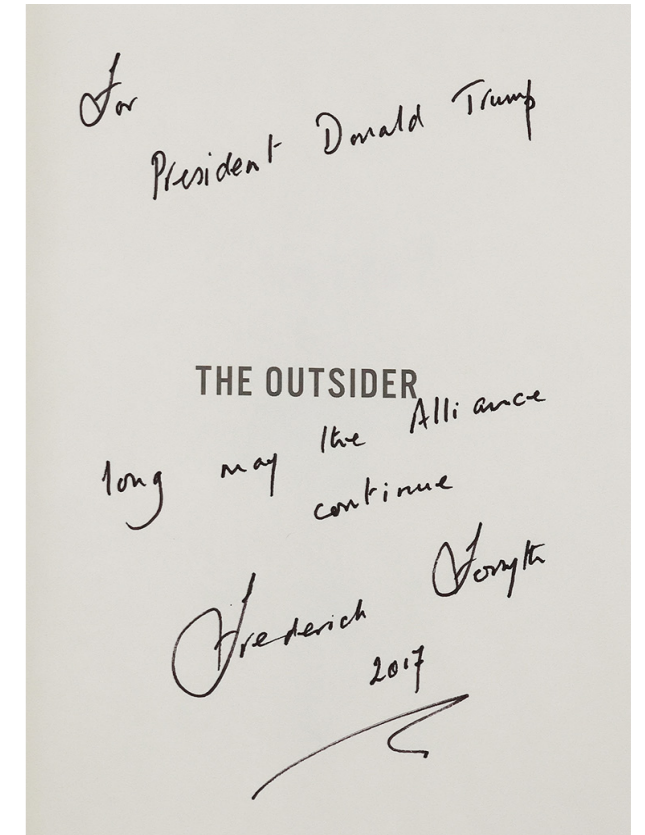 For
President Donald Trump
THE OUTSIDER
long may the Alliance
continue
Frederick Forsyth
2017